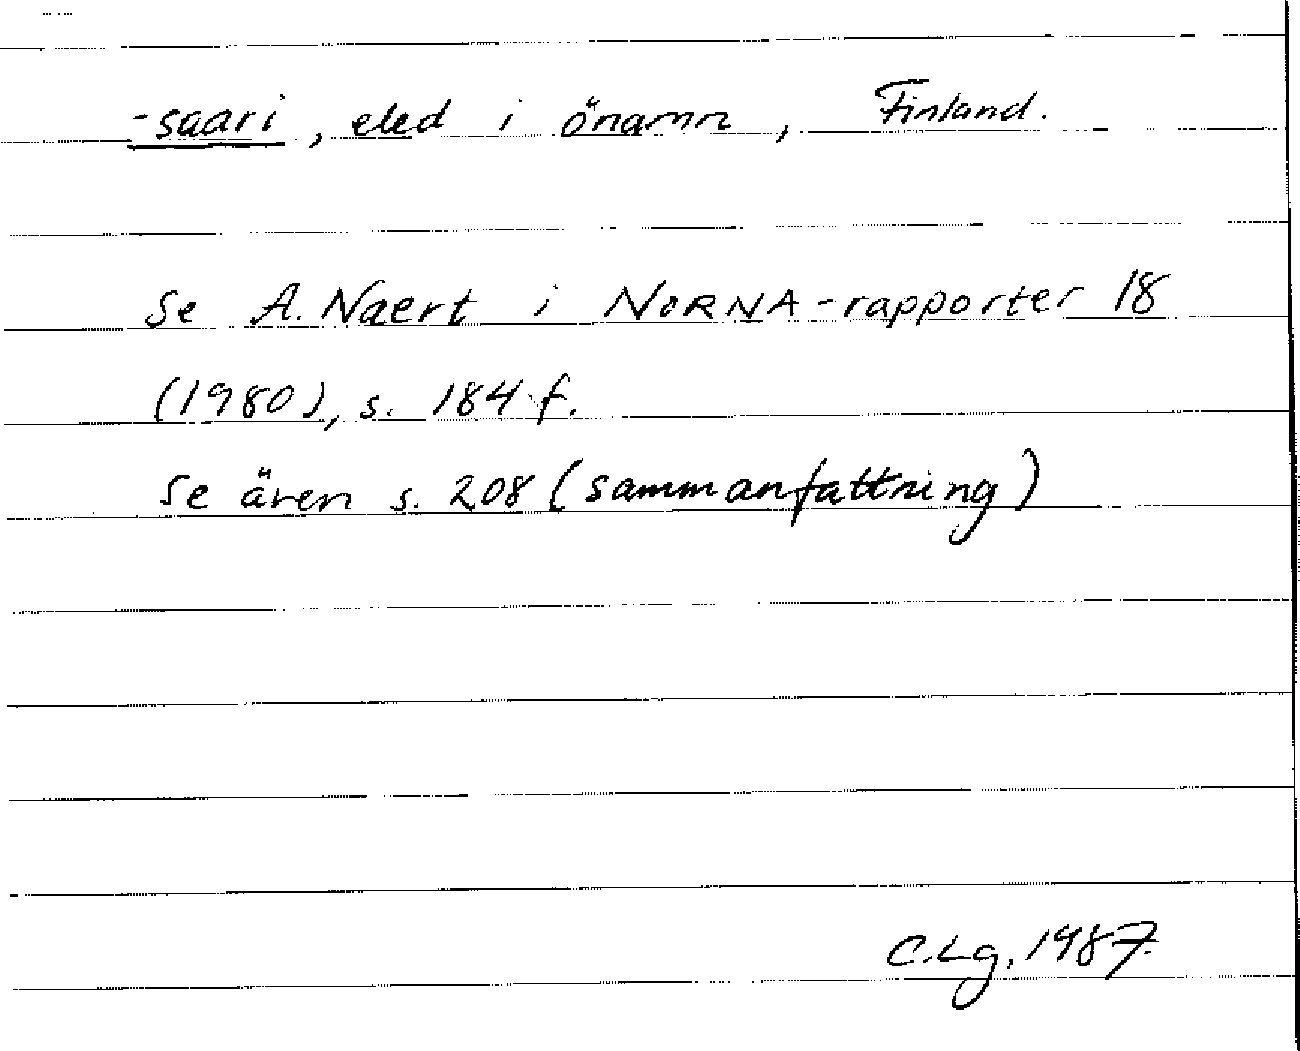 -saari, eled i önamn, Finland.
Se A. Naert i NORNA-rapporter 18
(1980), s. 184 f.
Se även s. 208 (sammanfattning)
C.Lg. 1987.